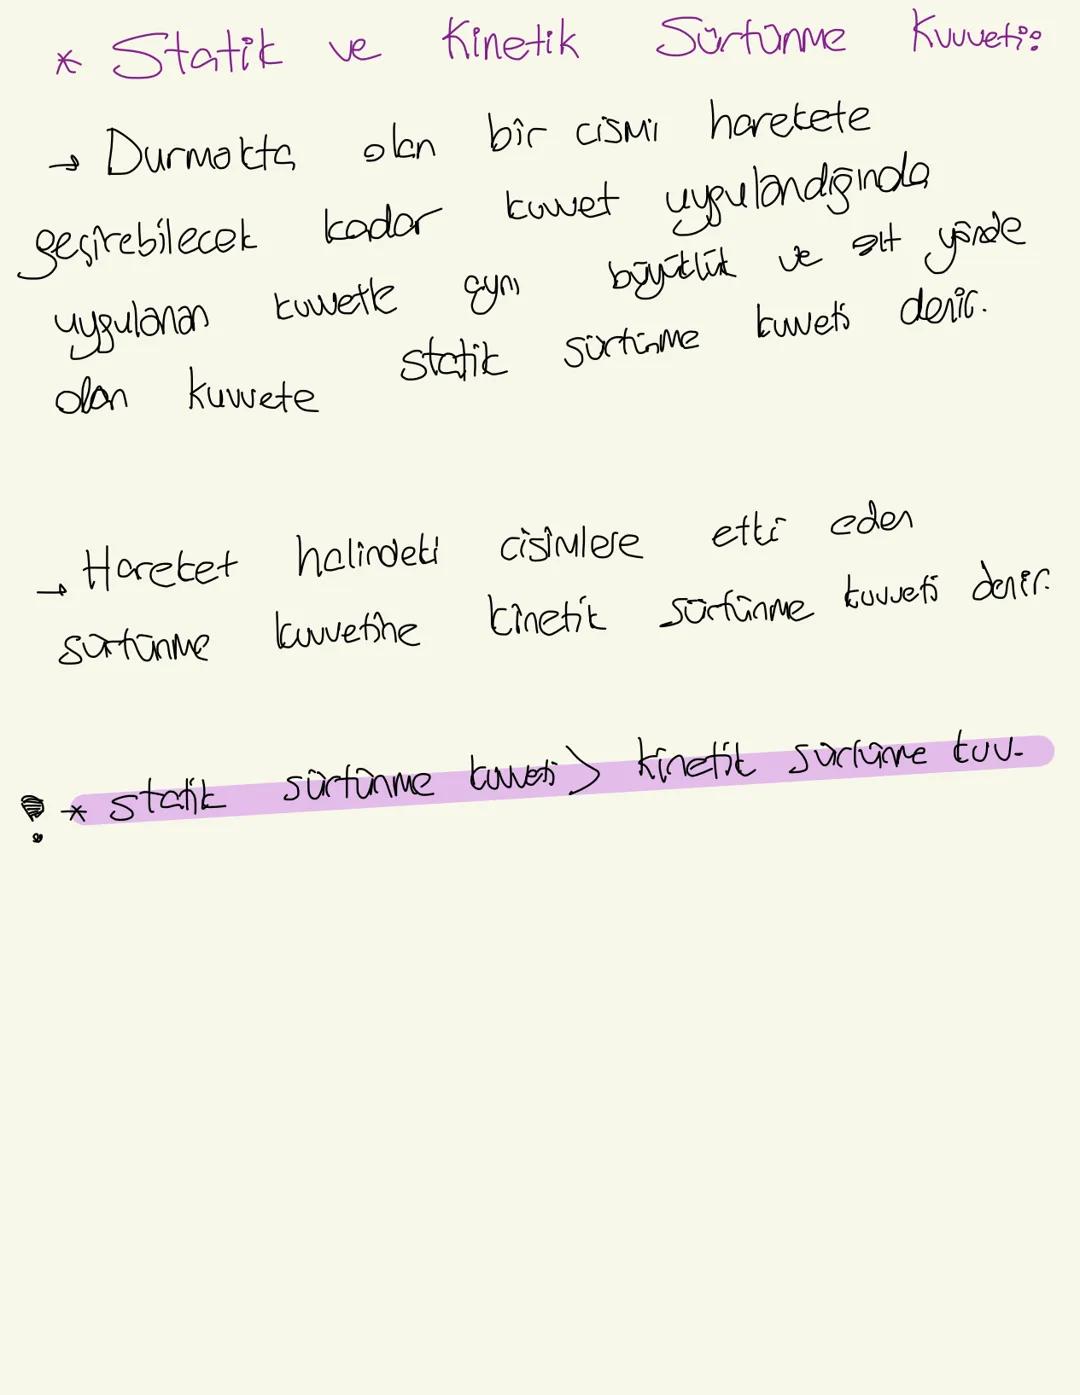 * Statik ve Kinetik Sürtünme Kuvveti:
→ Durmakta olan bir cismi harekete
geçirebilecek kadar kuvvet uygulandığında
uygulanan kuvvetle aynı büyüklük ve zıt yönde
olan kuvvete statik sürtünme kuvveti denir.
→ Hareket halindeki cisimlere etki eden
sürtünme kuvvetine kinetik sürtünme kuvveti denir.
! * statik sürtünme kuvveti > kinetik sürtünme kuv-